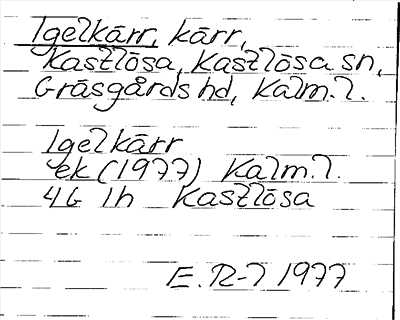 Igelkärr, kärr,
Kastlösa, Kastlösa sn,
Gräsgårds hd, Kalm. l.
Igelkärr
ek (1977) Kalm. l.
4G 1h Kastlösa
E. R-7 1977